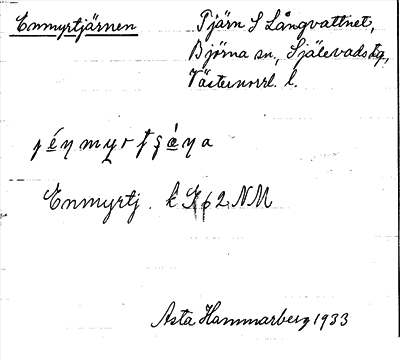 Enmyrtjärnen
Tjärn S Långvattnet,
Björna sn, Själevads tg,
Västernorrl. l.
Enmyrtj. k
Asta Hammarberg 1933